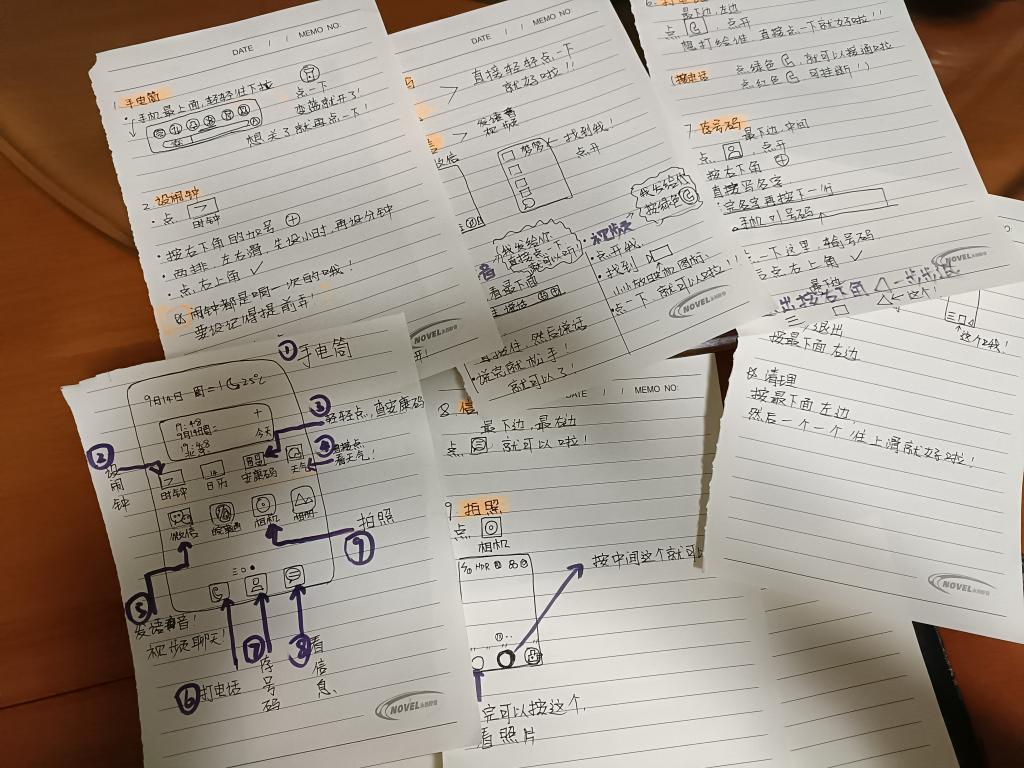 DATE / / MEMO NO:
1. 手电筒
手机最上面,轻轻往下拉
点一下
变亮就开了!
想关了就再点一下!
2. 设闹钟
·点
时钟
·按右下角的加号 ⊕
·两排,左右滑,先设小时,再设分钟
·点,右上角 ✓
闹钟都是响一次的哦!
要设记得提前弄!
NOVEL
DATE / / MEMO NO:
直接轻轻点一下
就好啦!!
发语音
视频
找到我!
点开
我发给你
直接点一下
看最下面
我发给你
按绿色
·视频
·点开我。
·找到
点一下,就可以啦!!
然后说话
说完就松手!
就可以了!
NOVEL
最下边,左边
点开
想打给谁,直接点一下就好啦!!
接电话
点绿色,就可以接通啦
点红色,可挂断!)
7. 存号码
最下边,中间
点
点开
按右下角 ⊕
直接写名字
写完名字再按下一行
手机号码
点一下这里,输号码
点右上角 ✓
NOVEL
这个!
退出
按最下面右边
这个哦!
清理
按最下面左边
然后一个一个往上滑就好啦!
NOVEL
① 手电筒
9月14日 周二 25℃
今天
③ 轻轻点,查安康码
④ 直接点
看天气!
② 设闹钟
时钟
日历
安康码
天气
微信
相机
相册
⑨ 拍照
⑤ 发语音!
视频聊天!
⑥ 打电话
⑦ 存号码
⑧ 看信息
NOVEL
DATE / / MEMO NO:
8. 信
最下边,最右边
点
就可以啦!
9. 拍照
点
相机
HDR
按中间这个就可以
完可以按这个,
看照片